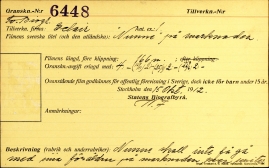 Gransknings-N:r 6448 Tillverkn.-N:r
Tillverkn. firma: Eclair
Filmens svenska titel (och den utländska): Nunne på marknaden
Filmens längd, före klippning: efter klippning:
Gransknings-avgift erlagd med
Ovanstående film godkännes för offentlig förevisning i Sverige, dock icke för barn under 15 år.
Stockholm den 15 Okt. 1912.
Statens Biografbyrå.
Anmärkningar:
Beskrivning (rubrik och underrubriker): Nunne skall inte få gå
med sina föräldrar på marknaden